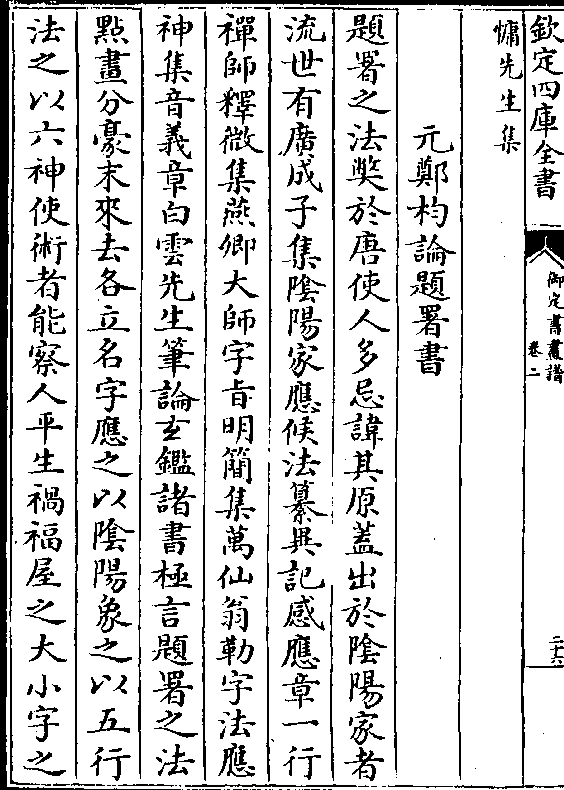 欽定四庫全書
御定書畫譜
卷二
二十六
慵先生集
元鄭杓論題署書
題署之法獘於唐使人多忌諱其原蓋出於陰陽家者
流世有廣成子集陰陽家應候法纂異記感應章一行
禪師釋微集燕卿大師字㫖明簡集萬仙翁勒字法應
神集音義章白雲先生筆論玄鑑諸書極言題署之法
點畫分豪末來去各立名字應之以陰陽象之以五行
法之以六神使術者能察人平生禍福屋之大小字之